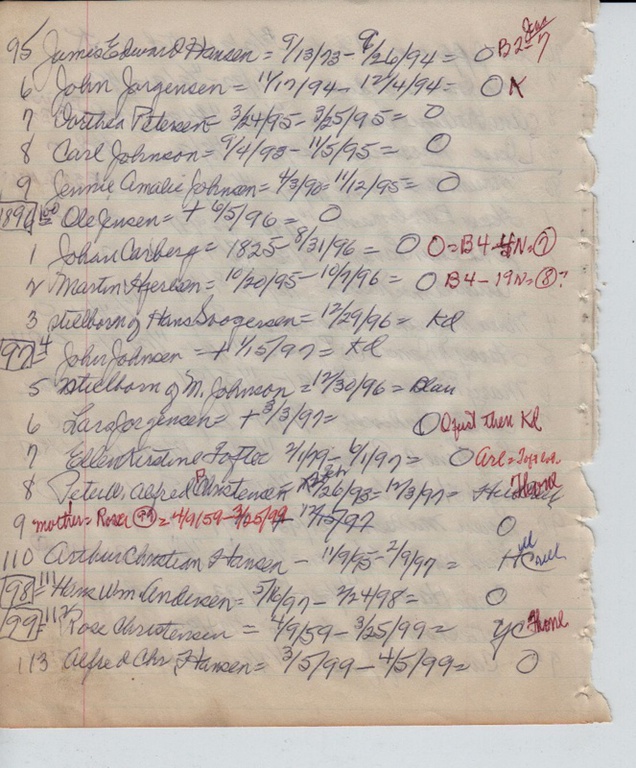 95 James Edward Hansen = 9/13/73 - 9/26/94 = O B2 = 7
6 John Jorgensen = 11/17/94 - 12/4/94 = O K
7 Dorthea Petersen = 3/24/95 - 3/25/95 = O
8 Carl Johnson = 9/4/93 - 11/5/95 = O
9 Jennie Amalie Johnson = 4/3/90 = 11/12/95 = O
1896 = Ole Jensen = + 6/5/96 = O
1 Johan Carberg = 1825 - 8/31/96 = O O = B4 - N = 7
2 Martin = 10/20/95 - 10/7/96 = O B4 - 19N = 8?
3 Stillborn of Hans = 12/29/96 = Kd
97 = 4 John Johnsen = + 1/15/97 = Kd
5 Stillborn of M. Johnson = 12/30/96 = Blau
6 Lars Jorgensen = + 3/3/97 = O O just then Kd
7 Ellen Kirstine Tofte 2/1/79 - 6/1/97 = O
8 Peter W. Alfred Christensen 26/93 = 12/3/97 = Thone
9 mother = Rose 99 = 4/9/59 - 3/25/99 + 12/15/97 O
110 Arthur Christian Hansen - 11/9/95 - 2/9/97 =
98 = 111 Hans Wm. Andersen = 5/16/97 - 2/24/98 = O
99 = 112 Rose Christensen = 4/9/59 - 3/25/99 = YC Thone
113 Alfred Chr. Hansen = 3/5/99 - 4/5/99 = O